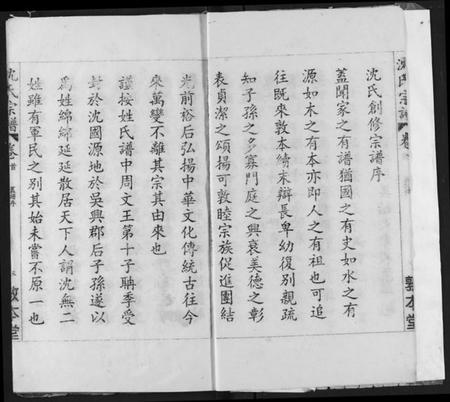 沈氏宗譜
沈氏創修宗譜序
蓋聞家之有譜猶國之有史如水之有
源如木之有本亦即人之有祖也可追
往既来敦本續末辯長卑幼復別親疏
知子孫之多寡門庭之興衰美德之彰
表貞潔之頌揚可敦睦宗族促進團結
光前裕后弘揚中華文化傳統古往今
來萬變不離其宗其由來也
謹按姓氏譜中周文王第十子聃季受
封於沈國源地於吳興郡后子孫遂以
為姓綿綿延延散居天下人謂沈無二
姓雖有軍民之別其始未嘗不原一也
沈氏宗譜
卷首
敦本堂
敦本堂